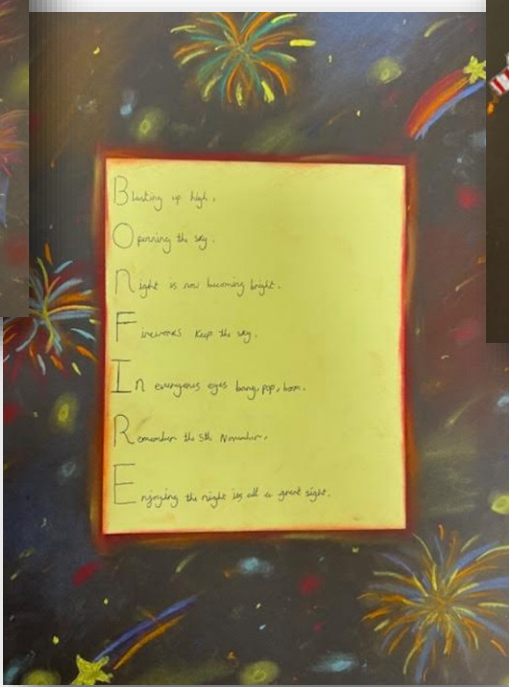 Blasting up high,
Openning the sky.
Night is now becoming bright.
Fireworks keep the sky.
In everyones eyes bang, pop, boom.
Remember the 5th November,
Enjoying the night its all a great sight.